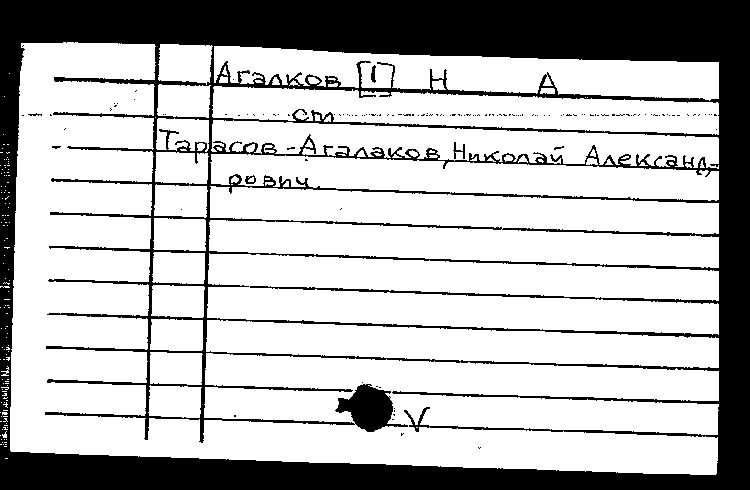 Агалков [1] Н А
сm
Тарасов-Агалаков, Николай Александ-
рович.
V